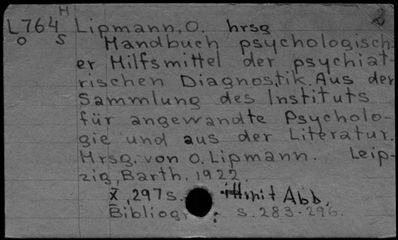 H 2
L764 Lipmann, O. hrsg
O S Handbuch psychologisch
er Hilfsmittel der psychiat-
rischen Diagnostik. Aus der
Sammlung des Instituts
für angewandte Psycholo-
gie und aus der Literatur.
Hrsg. von O. Lipmann. Leip-
zig, Barth, 1922.
X, 297s. mit Abb.
Bibliogr : s. 283-296.